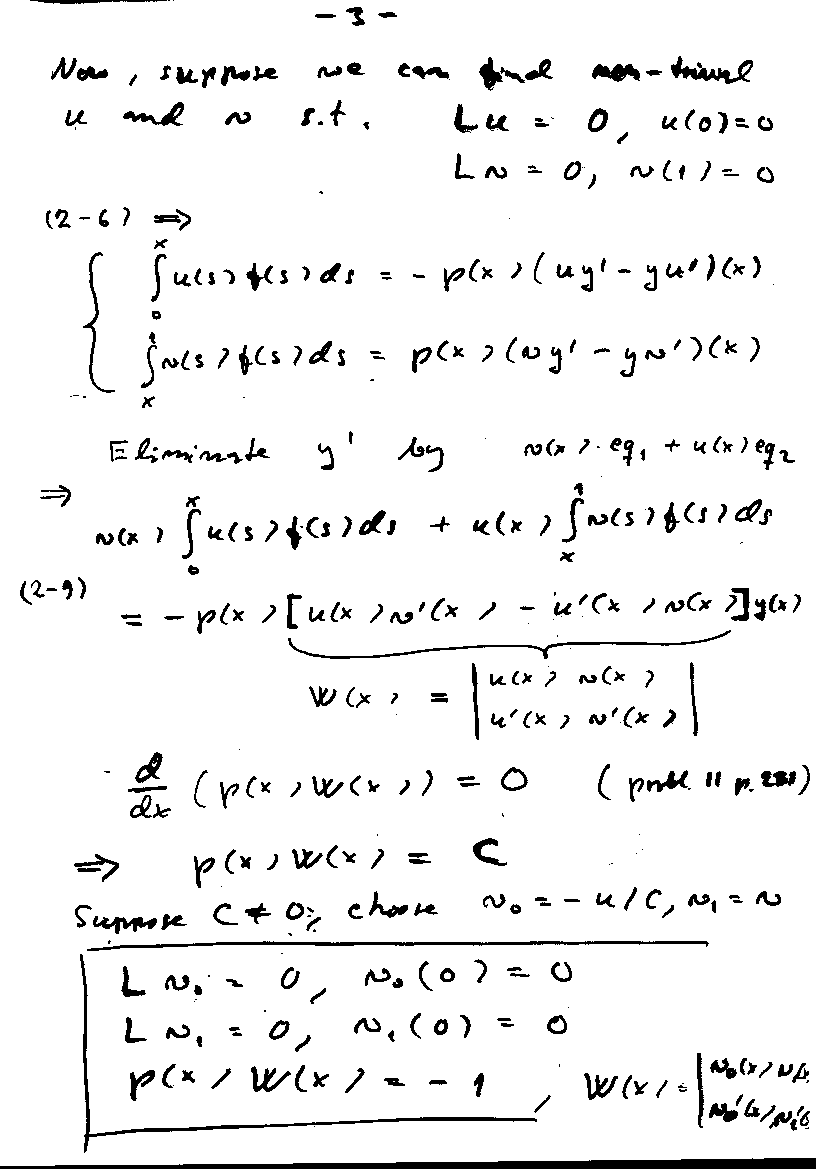 - 3 -
Now, suppose we can find non-trivial
u and v s.t. Lu = 0, u(0)=0
Lv = 0, v(1) = 0
(2-6) ⇒
∫₀ˣ u(s) f(s) ds = - p(x) (uy' - yu')(x)
∫ₓ¹ v(s) f(s) ds = p(x) (vy' - yv')(x)
Eliminate y' by v(x)·eq₁ + u(x)eq₂
⇒
v(x) ∫₀ˣ u(s) f(s) ds + u(x) ∫ₓ¹ v(s) f(s) ds
(2-9)
= - p(x) [u(x) v'(x) - u'(x) v(x)] y(x)
W(x) = | u(x) v(x) |
| u'(x) v'(x) |
d/dx (p(x) W(x)) = 0 (probl. 11 p. 281)
⇒ p(x) W(x) = C
Suppose C ≠ 0; choose v₀ = - u/C, v₁ = v
L v₀ = 0, v₀(0) = 0
L v₁ = 0, v₁(0) = 0
p(x) W(x) = - 1, W(x) = | v₀(x) v₁(x
| v₀'(x) v₁'(x